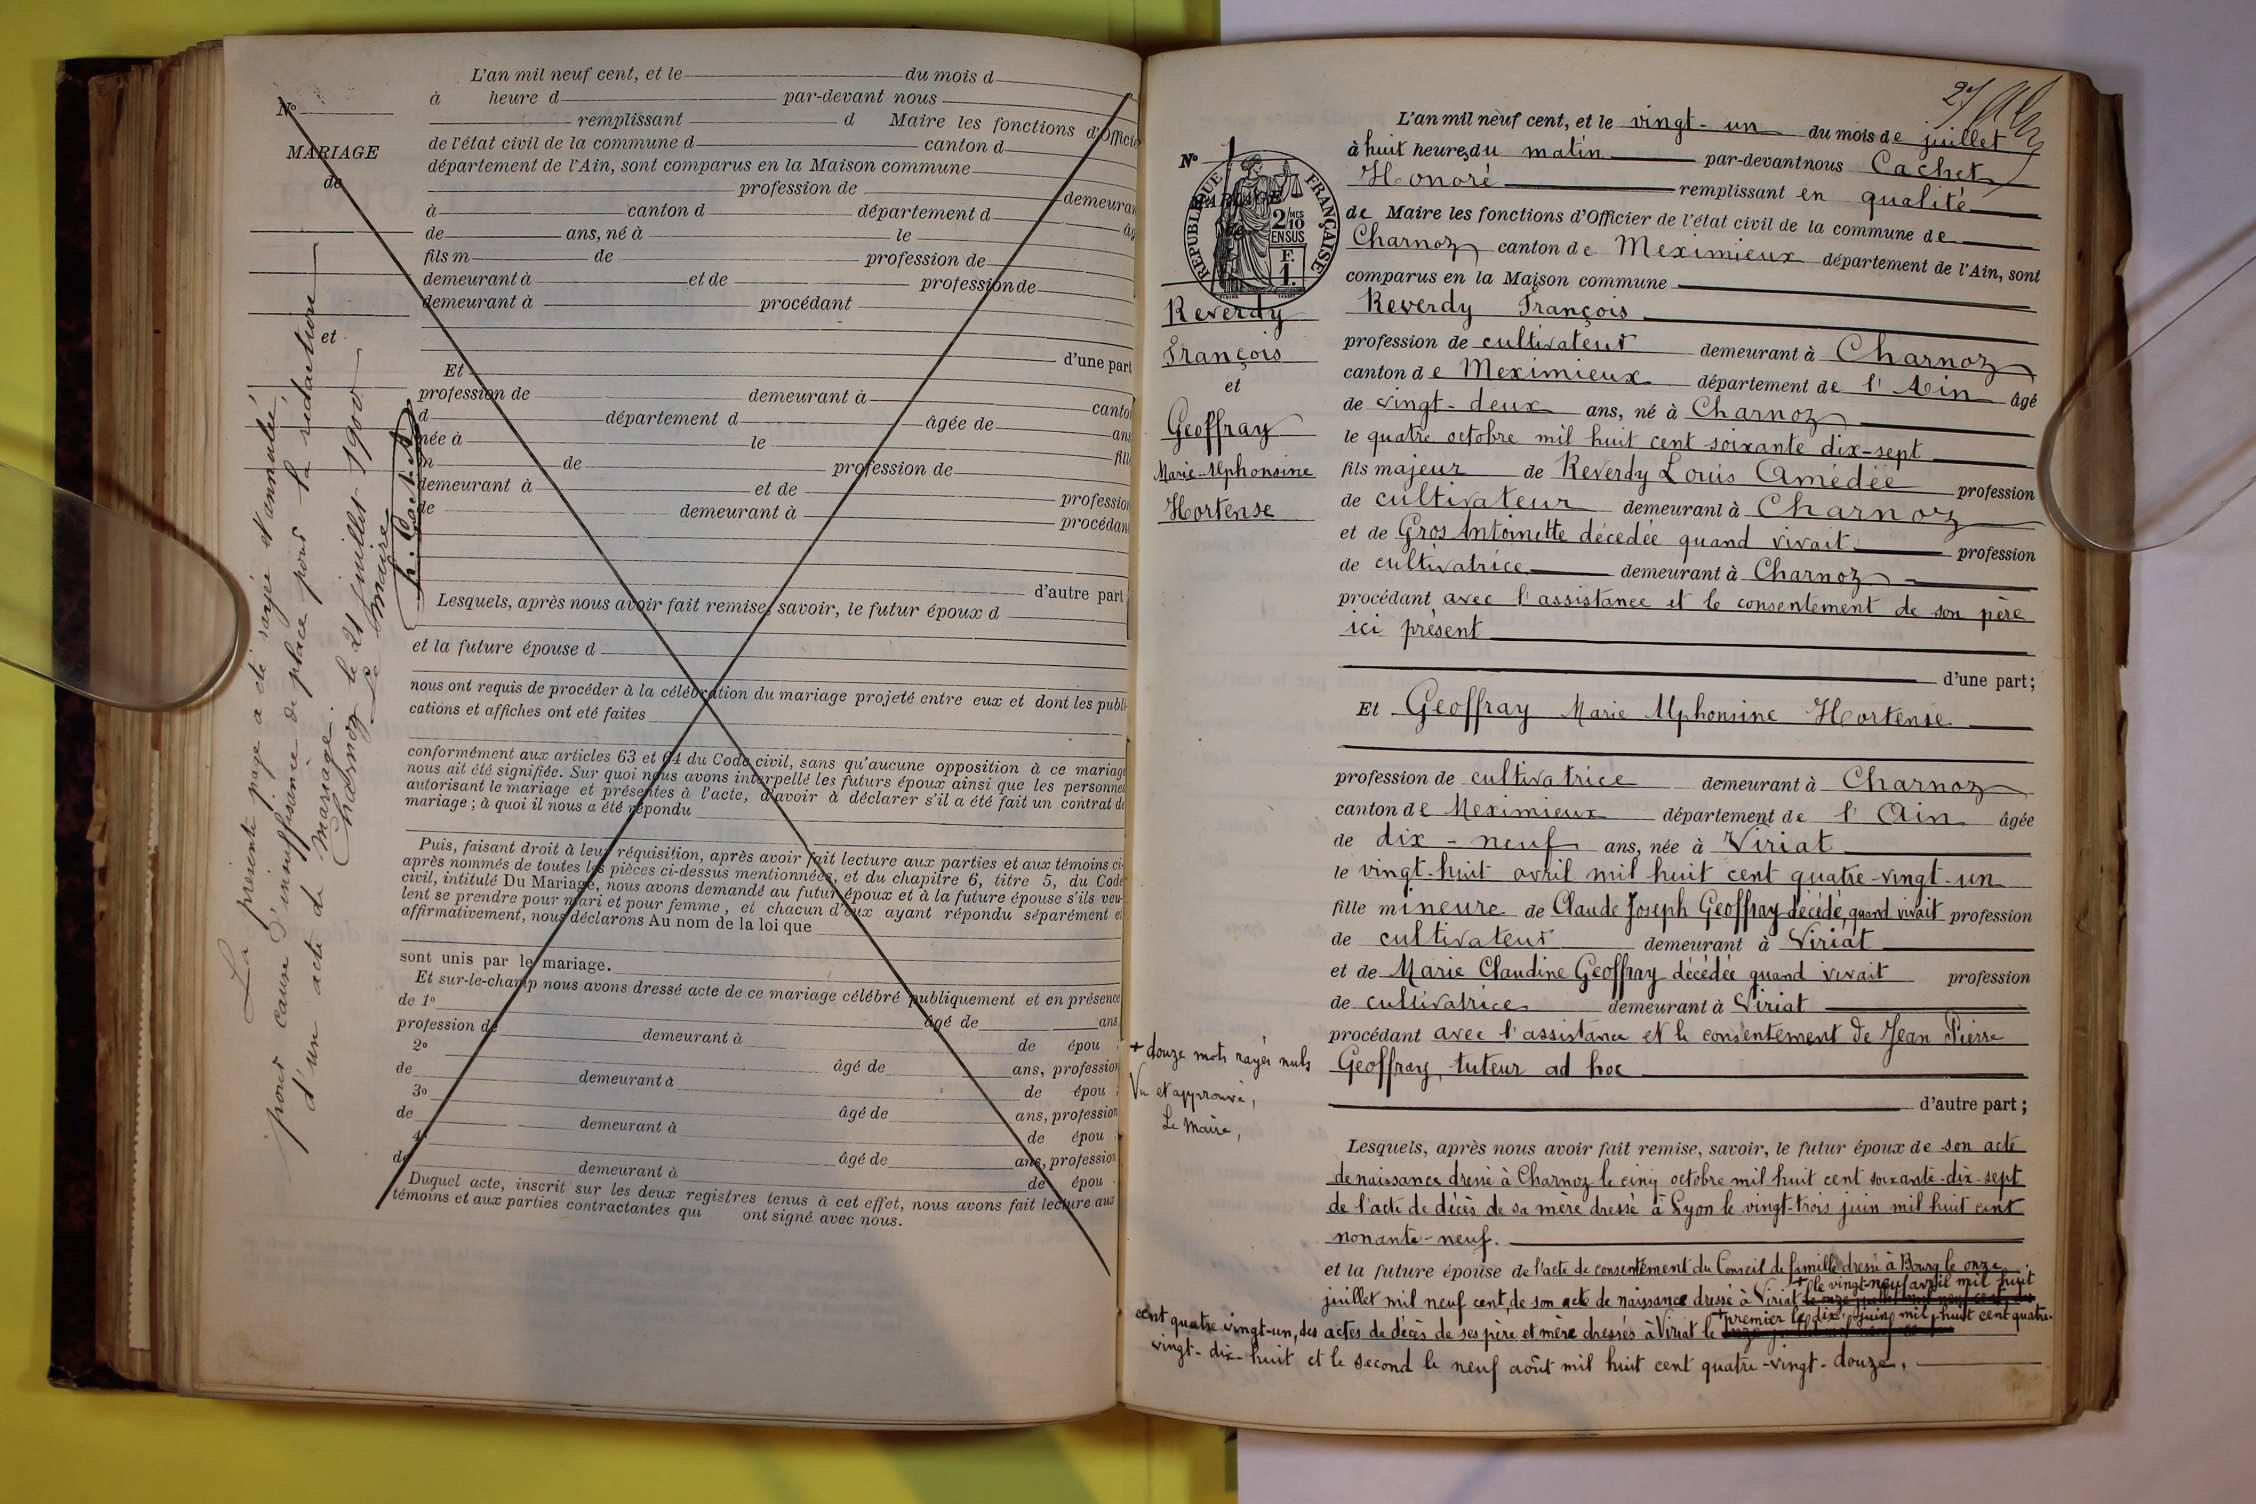 L'an mil neuf cent, et le du mois d
à heure d par-devant nous
remplissant d Maire les fonctions d'Officie
de l'état civil de la commune d canton d
département de l'Ain, sont comparus en la Maison commune
profession de demeuran
à canton d département d âg
de ans, né à le
fils m de profession de
demeurant à et de profession de
demeurant à procédant
d'une part
Et
profession de demeurant à canton
d département d âgée de ans
née à le fille
m de profession de
demeurant à et de profession
de demeurant à procédant
d'autre part;
Lesquels, après nous avoir fait remise, savoir, le futur époux d
et la future épouse d
nous ont requis de procéder à la célébration du mariage projeté entre eux et dont les publi
cations et affiches ont eté faites
conformément aux articles 63 et 64 du Code civil, sans qu'aucune opposition à ce mariage
nous ait été signifiée. Sur quoi nous avons interpellé les futurs époux ainsi que les personnes
autorisant le mariage et présentes à l'acte, d'avoir à déclarer s'il a été fait un contrat de
mariage ; à quoi il nous a été répondu
Puis, faisant droit à leur réquisition, après avoir fait lecture aux parties et aux témoins ci-
après nommés de toutes les pièces ci-dessus mentionnées, et du chapitre 6, titre 5, du Code
civil, intitulé Du Mariage, nous avons demandé au futur époux et à la future épouse s'ils veu-
lent se prendre pour mari et pour femme, et chacun d'eux ayant répondu séparément et
affirmativement, nous déclarons Au nom de la loi que
sont unis par le mariage.
Et sur-le-champ nous avons dressé acte de ce mariage célébré publiquement et en présence
de 1º âgé de ans,
profession de demeurant à de épou
2º âgé de ans, profession
de demeurant à de épou
3º âgé de ans, profession
de demeurant à de épou
4º âgé de ans, profession
de demeurant à de épou
Duquel acte, inscrit sur les deux registres tenus à cet effet, nous avons fait lecture aux
témoins et aux parties contractantes qui ont signé avec nous.
Nº
MARIAGE
de
et
La présente page a été rayée et annulée,
pour cause d'insuffisance de place pour la rédaction
d'un acte de mariage.
Charnoz le 21 juillet 1900
Le Maire
h. Cachet
27
L'an mil neuf cent, et le vingt-un du mois de juillet
à huit heures du matin par-devant nous Cachet
Honoré remplissant en qualité
de Maire les fonctions d'Officier de l'état civil de la commune de
Charnoz canton de Meximieux département de l'Ain, sont
comparus en la Maison commune
Reverdy François
profession de cultivateur demeurant à Charnoz
canton de Meximieux département de l'Ain âgé
de vingt-deux ans, né à Charnoz
le quatre octobre mil huit cent soixante dix-sept
fils majeur de Reverdy Louis Amédée profession
de cultivateur demeurant à Charnoz
et de Gros Antoinette décédée quand vivait profession
de cultivatrice demeurant à Charnoz
procédant avec l'assistance et le consentement de son père
ici présent
d'une part;
Et Geoffray Marie Alphonsine Hortense
profession de cultivatrice demeurant à Charnoz
canton de Meximieux département de l'Ain âgée
de dix-neuf ans, née à Viriat
le vingt-huit avril mil huit cent quatre-vingt-un
fille mineure de Claude Joseph Geoffray décédé, quand vivait profession
de cultivateur demeurant à Viriat
et de Marie Claudine Geoffray décédée quand vivait profession
de cultivatrice demeurant à Viriat
procédant avec l'assistance et le consentement de Jean Pierre
Geoffray, tuteur ad hoc
d'autre part;
Lesquels, après nous avoir fait remise, savoir, le futur époux de son acte
de naissance dressé à Charnoz le cinq octobre mil huit cent soixante-dix-sept
de l'acte de décès de sa mère dressé à Lyon le vingt-trois juin mil huit cent
nonante-neuf.
et la future épouse de l'acte de consentement du Conseil de famille dressé à Bourg le onze
+ le vingt-neuf avril mil huit
juillet mil neuf cent, de son acte de naissance dressé à Viriat le onze juillet mil neuf cent, des
+ premier le dix juin mil huit cent quatre-
cent quatre vingt-un, des actes de décès de ses père et mère dressés à Viriat le
vingt-dix-huit et le second le neuf août mil huit cent quatre-vingt-douze.
Nº 1
MARIAGE
RÉPUBLIQUE FRANÇAISE
2/10
EN SUS
F.
1.
Reverdy
François
et
Geoffray
Marie-Alphonsine
Hortense
+ douze mots rayés nuls
Vu et approuvé,
Le Maire,